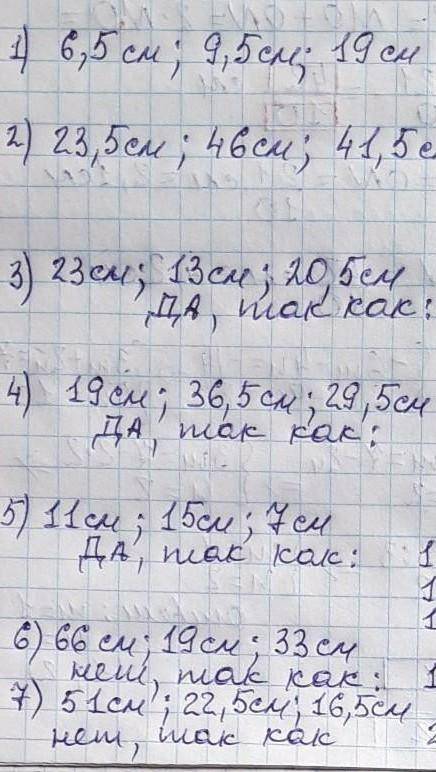 1) 6,5 см; 9,5 см; 19 см
2) 23,5 см; 46 см; 41,5 с
3) 23 см; 13 см; 20,5 см
ДА, так как:
4) 19 см; 36,5 см; 29,5 см
ДА, так как:
5) 11 см; 15 см; 7 см
ДА, так как: 1
1
1
6) 66 см; 19 см; 33 см
нет, так как: 1
7) 51 см; 22,5 см; 16,5 см
нет, так как 2